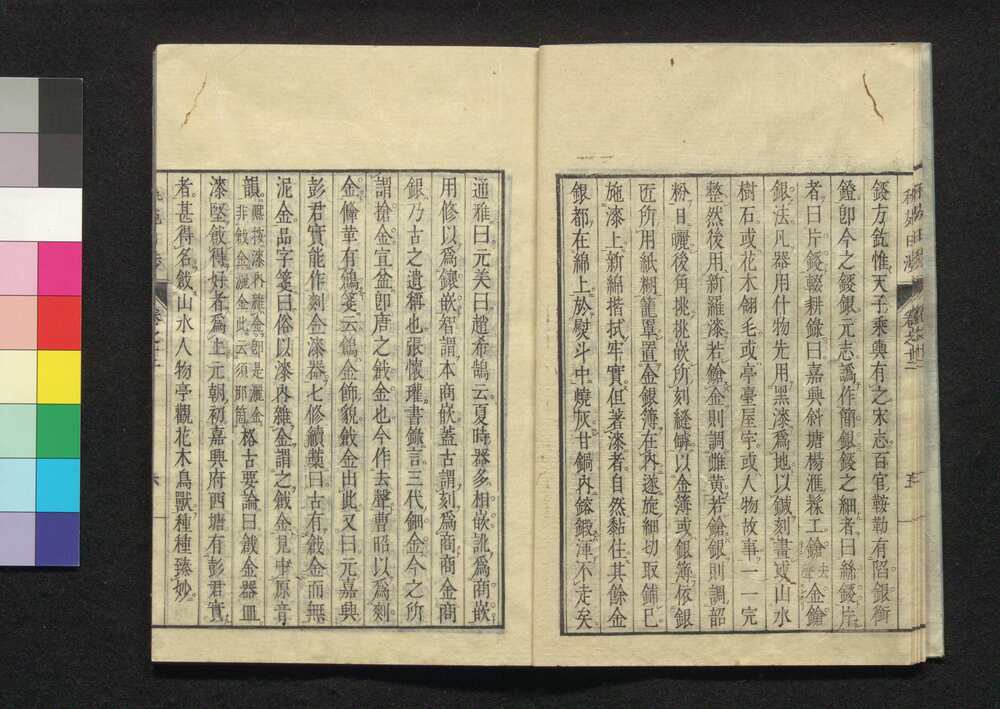 鋄方釳惟天子乘輿有之宋志百官鞍勒有陷銀銜
鐙卽今之鋄銀元志譌作簡銀鋄之細者曰絲鋄片
者曰片鋄輟耕錄曰嘉興斜塘楊滙髹工鎗去聲金鎗
銀法凡器用什物先用黑漆爲地以鍼刻畫或山水
樹石或花木翎毛或亭臺屋宇或人物故事一一完
整然後用新羅漆若鎗金則調雌黃若鎗銀則調韶
粉日曬後角挑挑嵌所刻縫罅以金簿或銀簿依銀
匠所用紙糊籠罩置金銀簿在內遂旋細切取鋪已
施漆上新綿揩拭牢實但著漆者自然黏住其餘金
銀都在綿上於熨斗中燒灰甘鍋內鎔鍛渾不走矣
通雅曰元美曰趙希鵠云夏時器多相嵌訛爲商嵌
用修以爲鑲嵌智謂本商嵌蓋古謂刻爲商商金商
銀乃古之遺稱也張懷瓘書錄言三代鈿金今之所
謂搶金宜盆卽唐之戧金也今作去聲曹昭以爲刻
金絛革有鵮箋云鵮金飾貌戧金出此又曰元嘉興
彭君實能作刻金漆器七修續藁曰古有戧金而無
泥金品字箋曰俗以漆內雜金謂之戧金見中原音
韻熙按漆內雜金卽是灑金非戧金灑金此云須那箇格古要論曰戧金器皿
漆堅戧得好者爲上元朝初嘉興府西塘有彭君實
者甚得名戧山水人物亭觀花木鳥獸種種臻妙